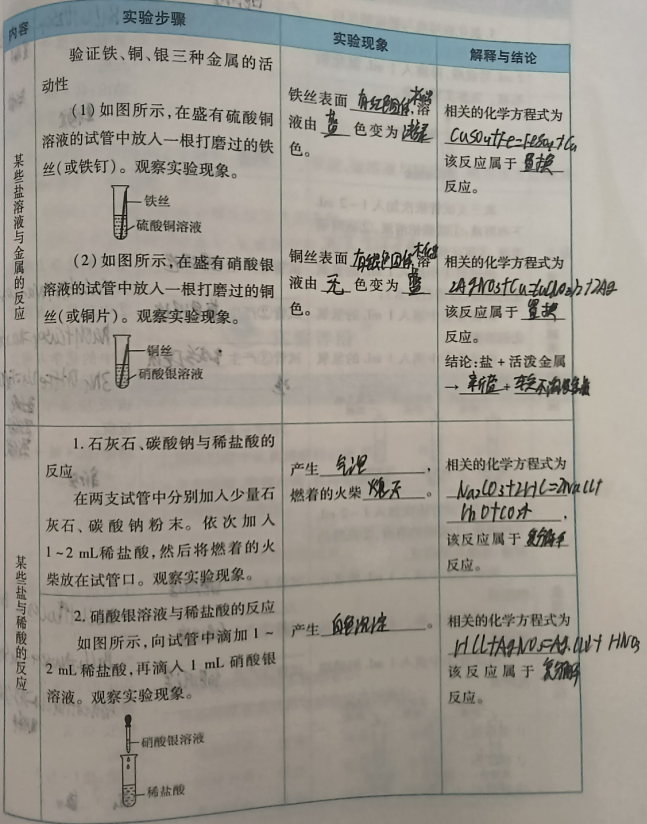 内容
实验步骤
实验现象
解释与结论
某些盐溶液与金属的反应
验证铁、铜、银三种金属的活
动性
(1)如图所示,在盛有硫酸铜
溶液的试管中放入一根打磨过的铁
丝(或铁钉)。观察实验现象。
铁丝
硫酸铜溶液
铁丝表面 有红色固体 溶
液由 蓝 色变为 浅绿
色。
相关的化学方程式为
CuSO4+Fe=FeSO4+Cu
该反应属于 置换
反应。
(2)如图所示,在盛有硝酸银
溶液的试管中放入一根打磨过的铜
丝(或铜片)。观察实验现象。
铜丝
硝酸银溶液
铜丝表面 有银色固体 溶
液由 无 色变为 蓝
色。
相关的化学方程式为
2AgNO3+Cu=Cu(NO3)2+2Ag
该反应属于 置换
反应。
结论:盐+活泼金属
→ 新盐 +
某些盐与稀酸的反应
1.石灰石、碳酸钠与稀盐酸的
反应
在两支试管中分别加入少量石
灰石、碳酸钠粉末。依次加入
1~2 mL稀盐酸,然后将燃着的火
柴放在试管口。观察实验现象。
产生 气泡 ,
燃着的火柴 熄灭 。
相关的化学方程式为
Na2CO3+2HCl=2NaCl+
H2O+CO2↑ ,
该反应属于 复分解
反应。
2.硝酸银溶液与稀盐酸的反应
如图所示,向试管中滴加1~
2 mL稀盐酸,再滴入1 mL硝酸银
溶液。观察实验现象。
硝酸银溶液
稀盐酸
产生 白色沉淀 。
相关的化学方程式为
HCl+AgNO3=AgCl↓+HNO3
该反应属于 复分解
反应。